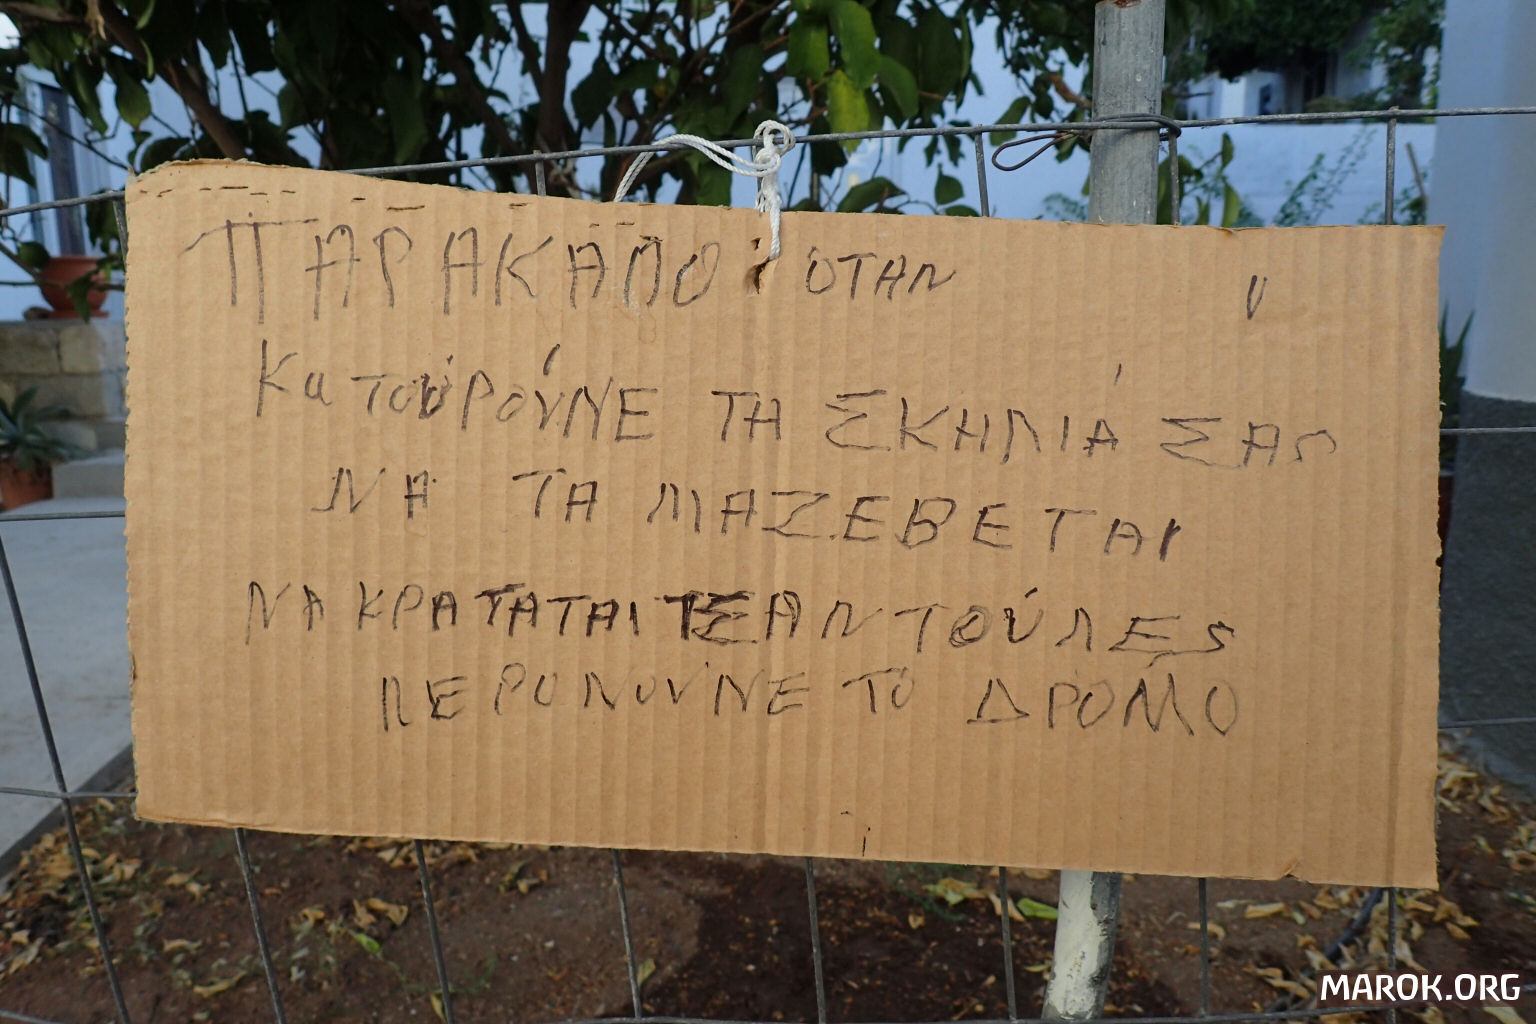 ΠΑΡΑΚΑΛΟ ΌΤΑΝ
ΚαΤΟΥΡΟΎΝΕ ΤΑ ΣΚΗΛΙΆ ΣΑς
ΝΑ ΤΑ ΜΑΖΕΒΕΤΑΙ
ΝΑ ΚΡΑΤΑΤΑΙ ΤΣΑΝΤΟΎΛΕς
ΠΕΡΟΝΟΎΝΕ ΤΟ ΔΡΟΜΟ
MAROK.ORG